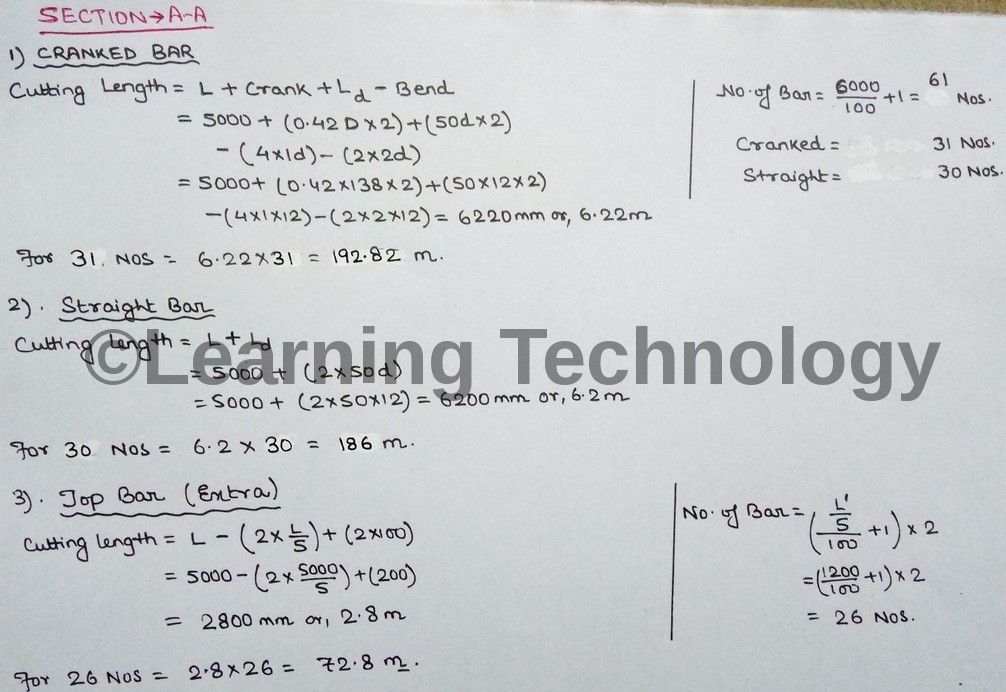 SECTION→A-A
1) CRANKED BAR
Cutting Length = L + Crank + Ld - Bend
= 5000 + (0.42 D × 2) + (50d × 2)
- (4×1d) - (2×2d)
= 5000 + (0.42×138×2) + (50×12×2)
- (4×1×12) - (2×2×12) = 6220 mm or, 6.22m
For 31 NOS = 6.22×31 = 192.82 m.
No. of Bar = 6000/100 + 1 = 61 Nos.
Cranked = 31 Nos.
Straight = 30 Nos.
2). Straight Bar
Cutting Length = L + Ld
= 5000 + (2×50d)
= 5000 + (2×50×12) = 6200 mm or, 6.2 m
For 30 NOS = 6.2 × 30 = 186 m.
©Learning Technology
3). Top Bar (Extra)
Cutting length = L - (2× L/5) + (2×100)
= 5000 - (2× 5000/5) + (200)
= 2800 mm or, 2.8 m
For 26 NOS = 2.8×26 = 72.8 m.
No. of Bar = (L'/5/100 + 1) × 2
= (1200/100 + 1) × 2
= 26 NOS.